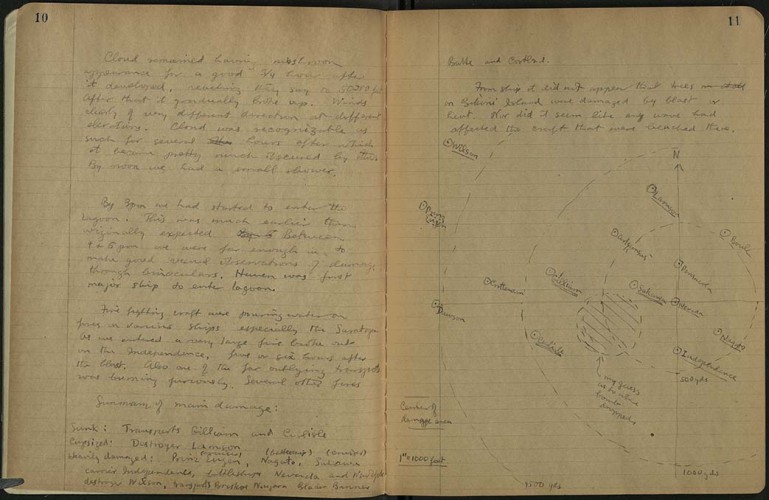 10
Cloud remained having mushroom
appearance for a good 3/4 hour after
it developed, reaching they say to
After that it gradually broke up. Winds
clearly of very different direction at different
elevations. Cloud was recognizable as
such for several hours after which
it became pretty much obscured by
By noon we had a small shower.
By 3pm we had started to enter the
lagoon. This was much earlier than
originally expected. Between
4 & 5 pm we were far enough in to
make good visual observations of damage
through binoculars. Haven was first
major ship to enter lagoon.
Fire fighting craft were pouring water on
fires in various ships especially the Saratoga
As we entered a very large fire broke out
in the Independence, five or six hours after
the blast. Also one of the far outlying transports
was burning furiously. Several other fires
Summary of main damage:
Sunk: Transports Gilliam and Carlisle
Capsized: Destroyer Lamson
Heavily damaged: Prinz Eugen, (cruiser) Nagato, (battleship) Sakawa (cruiser)
carrier Independence, battleships Nevada and New York
destroyer Wilson, transports
11
Brule and Cortland.
From ship it did not appear that trees
on Bikini Island were damaged by blast or
heat. Nor did it seem like any wave had
affected the craft that were beached there.
N
Wilson
Prinz Eugen
Lamson
Gilliam
Carlisle
Sakawa
Nevada
Pensacola
Nagato
Independence
my guess
as to where
bomb
dropped
500 yds
Center of
damage area
1" = 1000 feet
1500 yds
1000 yds